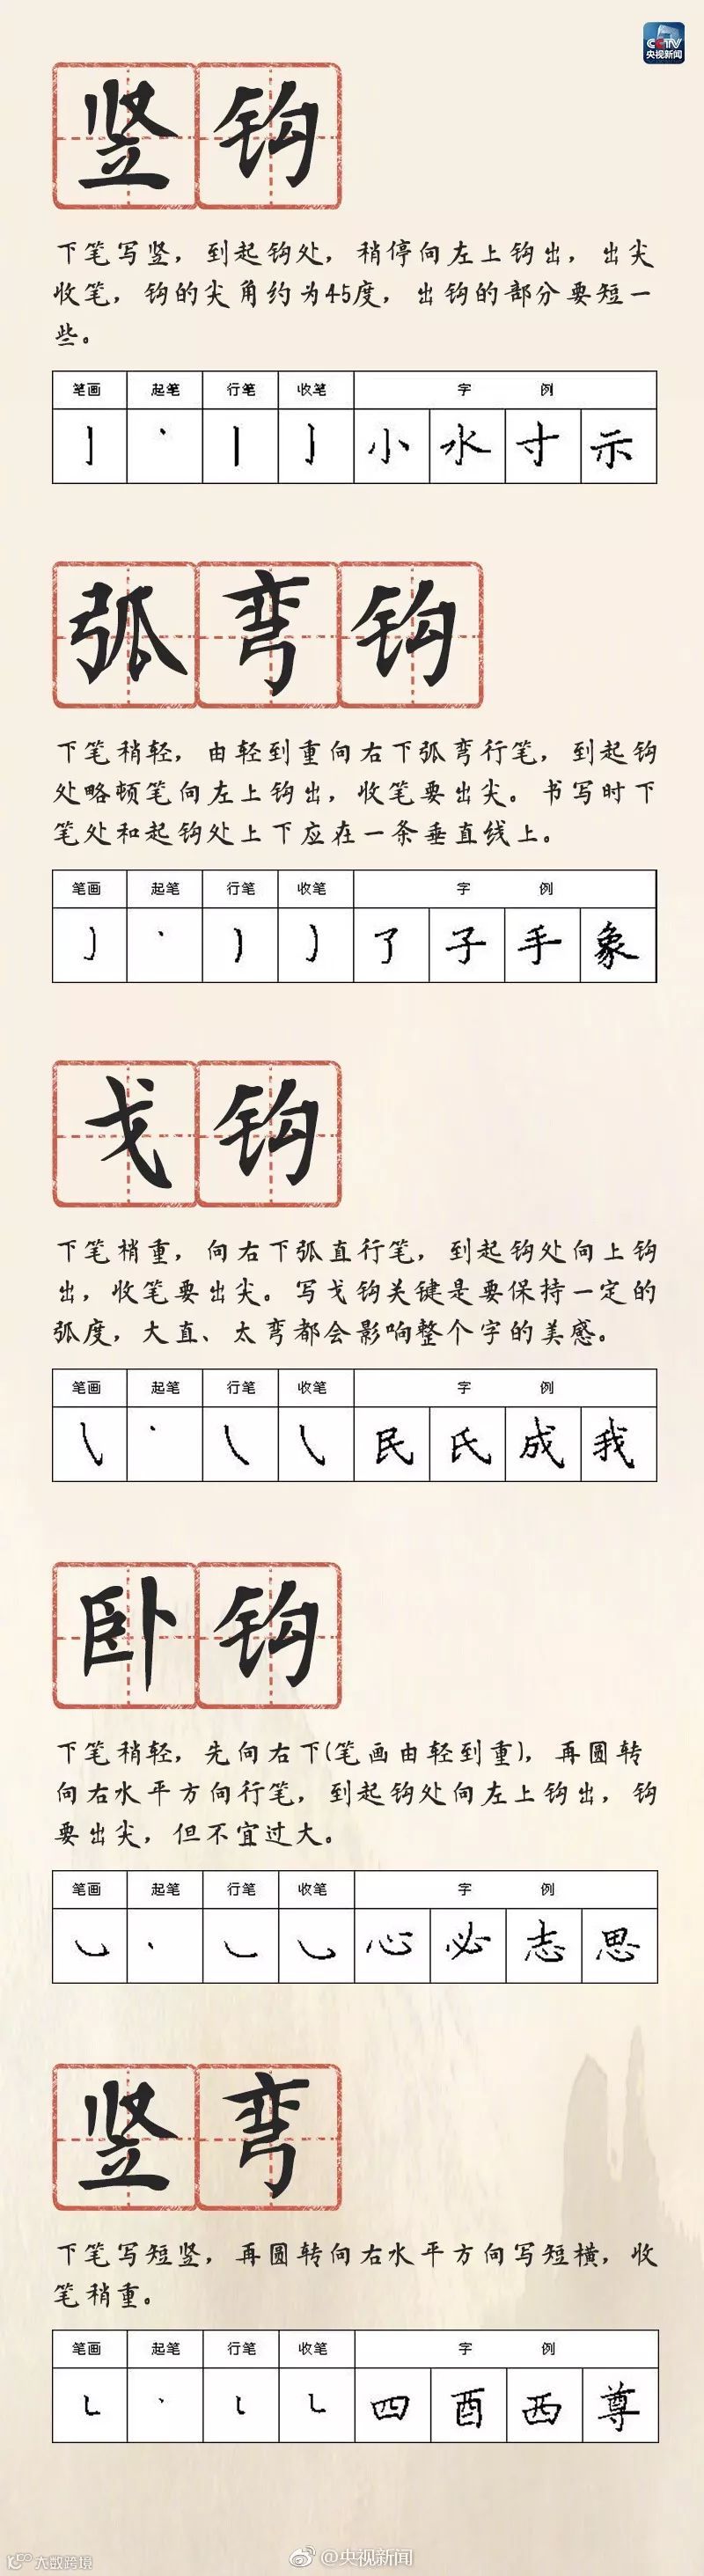 CCTV
央视新闻
竖钩
下笔写竖，到起钩处，稍停向左上钩出，出尖
收笔，钩的尖角约为45度，出钩的部分要短一
些。
笔画 起笔 行笔 收笔 字 例
亅 丶 丨 亅 小 水 寸 示
弧弯钩
下笔稍轻，由轻到重向右下弧弯行笔，到起钩
处略顿笔向左上钩出，收笔要出尖。书写时下
笔处和起钩处上下应在一条垂直线上。
笔画 起笔 行笔 收笔 字 例
了 子 手 象
戈钩
下笔稍重，向右下弧直行笔，到起钩处向上钩
出，收笔要出尖。写戈钩关键是要保持一定的
弧度，大直、太弯都会影响整个字的美感。
笔画 起笔 行笔 收笔 字 例
民 氏 成 我
卧钩
下笔稍轻，先向右下(笔画由轻到重)，再圆转
向右水平方向行笔，到起钩处向左上钩出，钩
要出尖，但不宜过大。
笔画 起笔 行笔 收笔 字 例
心 必 志 思
竖弯
下笔写短竖，再圆转向右水平方向写短横，收
笔稍重。
笔画 起笔 行笔 收笔 字 例
四 酉 西 尊
大数跨境
@央视新闻